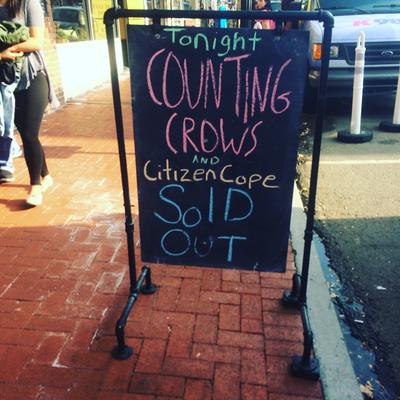 Tonight
COUNTING
CROWS
AND
Citizen Cope
SOlD
OUT